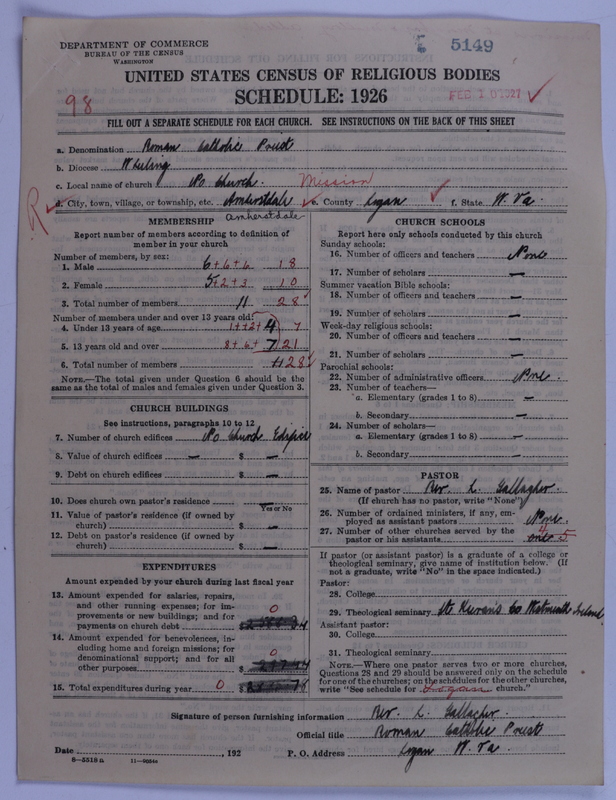 DEPARTMENT OF COMMERCE
BUREAU OF THE CENSUS
WASHINGTON
5149
UNITED STATES CENSUS OF RELIGIOUS BODIES
SCHEDULE: 1926
98
FEB 1 0 1927
FILL OUT A SEPARATE SCHEDULE FOR EACH CHURCH. SEE INSTRUCTIONS ON THE BACK OF THIS SHEET
a. Denomination Roman Catholic Priest
b. Diocese Wheeling
c. Local name of church No Church. Mission
d. City, town, village, or township, etc. Amherstdale e. County Logan f. State W. Va.
R
Amherstdale
MEMBERSHIP
Report number of members according to definition of member in your church
Number of members, by sex:
1. Male 6+6+6 18
2. Female 5+2+3 10
3. Total number of members 11 28
Number of members under and over 13 years old:
4. Under 13 years of age 1+2+4 7
5. 13 years old and over 8+6+7 21
6. Total number of members 28
NOTE.—The total given under Question 6 should be the same as the total of males and females given under Question 3.
CHURCH BUILDINGS
See instructions, paragraphs 10 to 12
7. Number of church edifices No Church Edifice
8. Value of church edifices — $ —
9. Debt on church edifices $ —
10. Does church own pastor's residence —
Yes or No
11. Value of pastor's residence (if owned by church) $ —
12. Debt on pastor's residence (if owned by church) $ —
EXPENDITURES
Amount expended by your church during last fiscal year
13. Amount expended for salaries, repairs, and other running expenses; for improvements or new buildings; and for payments on church debt 0 $
14. Amount expended for benevolences, including home and foreign missions; for denominational support; and for all other purposes 0 $
15. Total expenditures during year 0 $
CHURCH SCHOOLS
Report here only schools conducted by this church
Sunday schools:
16. Number of officers and teachers None
17. Number of scholars —
Summer vacation Bible schools:
18. Number of officers and teachers —
19. Number of scholars —
Week-day religious schools:
20. Number of officers and teachers —
21. Number of scholars —
Parochial schools:
22. Number of administrative officers None
23. Number of teachers—
a. Elementary (grades 1 to 8) —
b. Secondary —
24. Number of scholars—
a. Elementary (grades 1 to 8) —
b. Secondary —
PASTOR
25. Name of pastor Rev. L. Gallagher.
(If church has no pastor, write "None")
26. Number of ordained ministers, if any, employed as assistant pastors None.
27. Number of other churches served by the pastor or his assistants one 5
If pastor (or assistant pastor) is a graduate of a college or theological seminary, give name of institution below. (If not a graduate, write "No" in the space indicated.)
Pastor:
28. College
29. Theological seminary St Kierans Co Ireland
Assistant pastor:
30. College
31. Theological seminary
NOTE.—Where one pastor serves two or more churches, Questions 28 and 29 should be answered only on the schedule for one of the churches; on the schedules for the other churches, write "See schedule for Logan church."
Signature of person furnishing information Rev. L. Gallagher
Official title Roman Catholic Priest
Date , 192 P. O. Address Logan W. Va.
8—5518 a 11—9054a